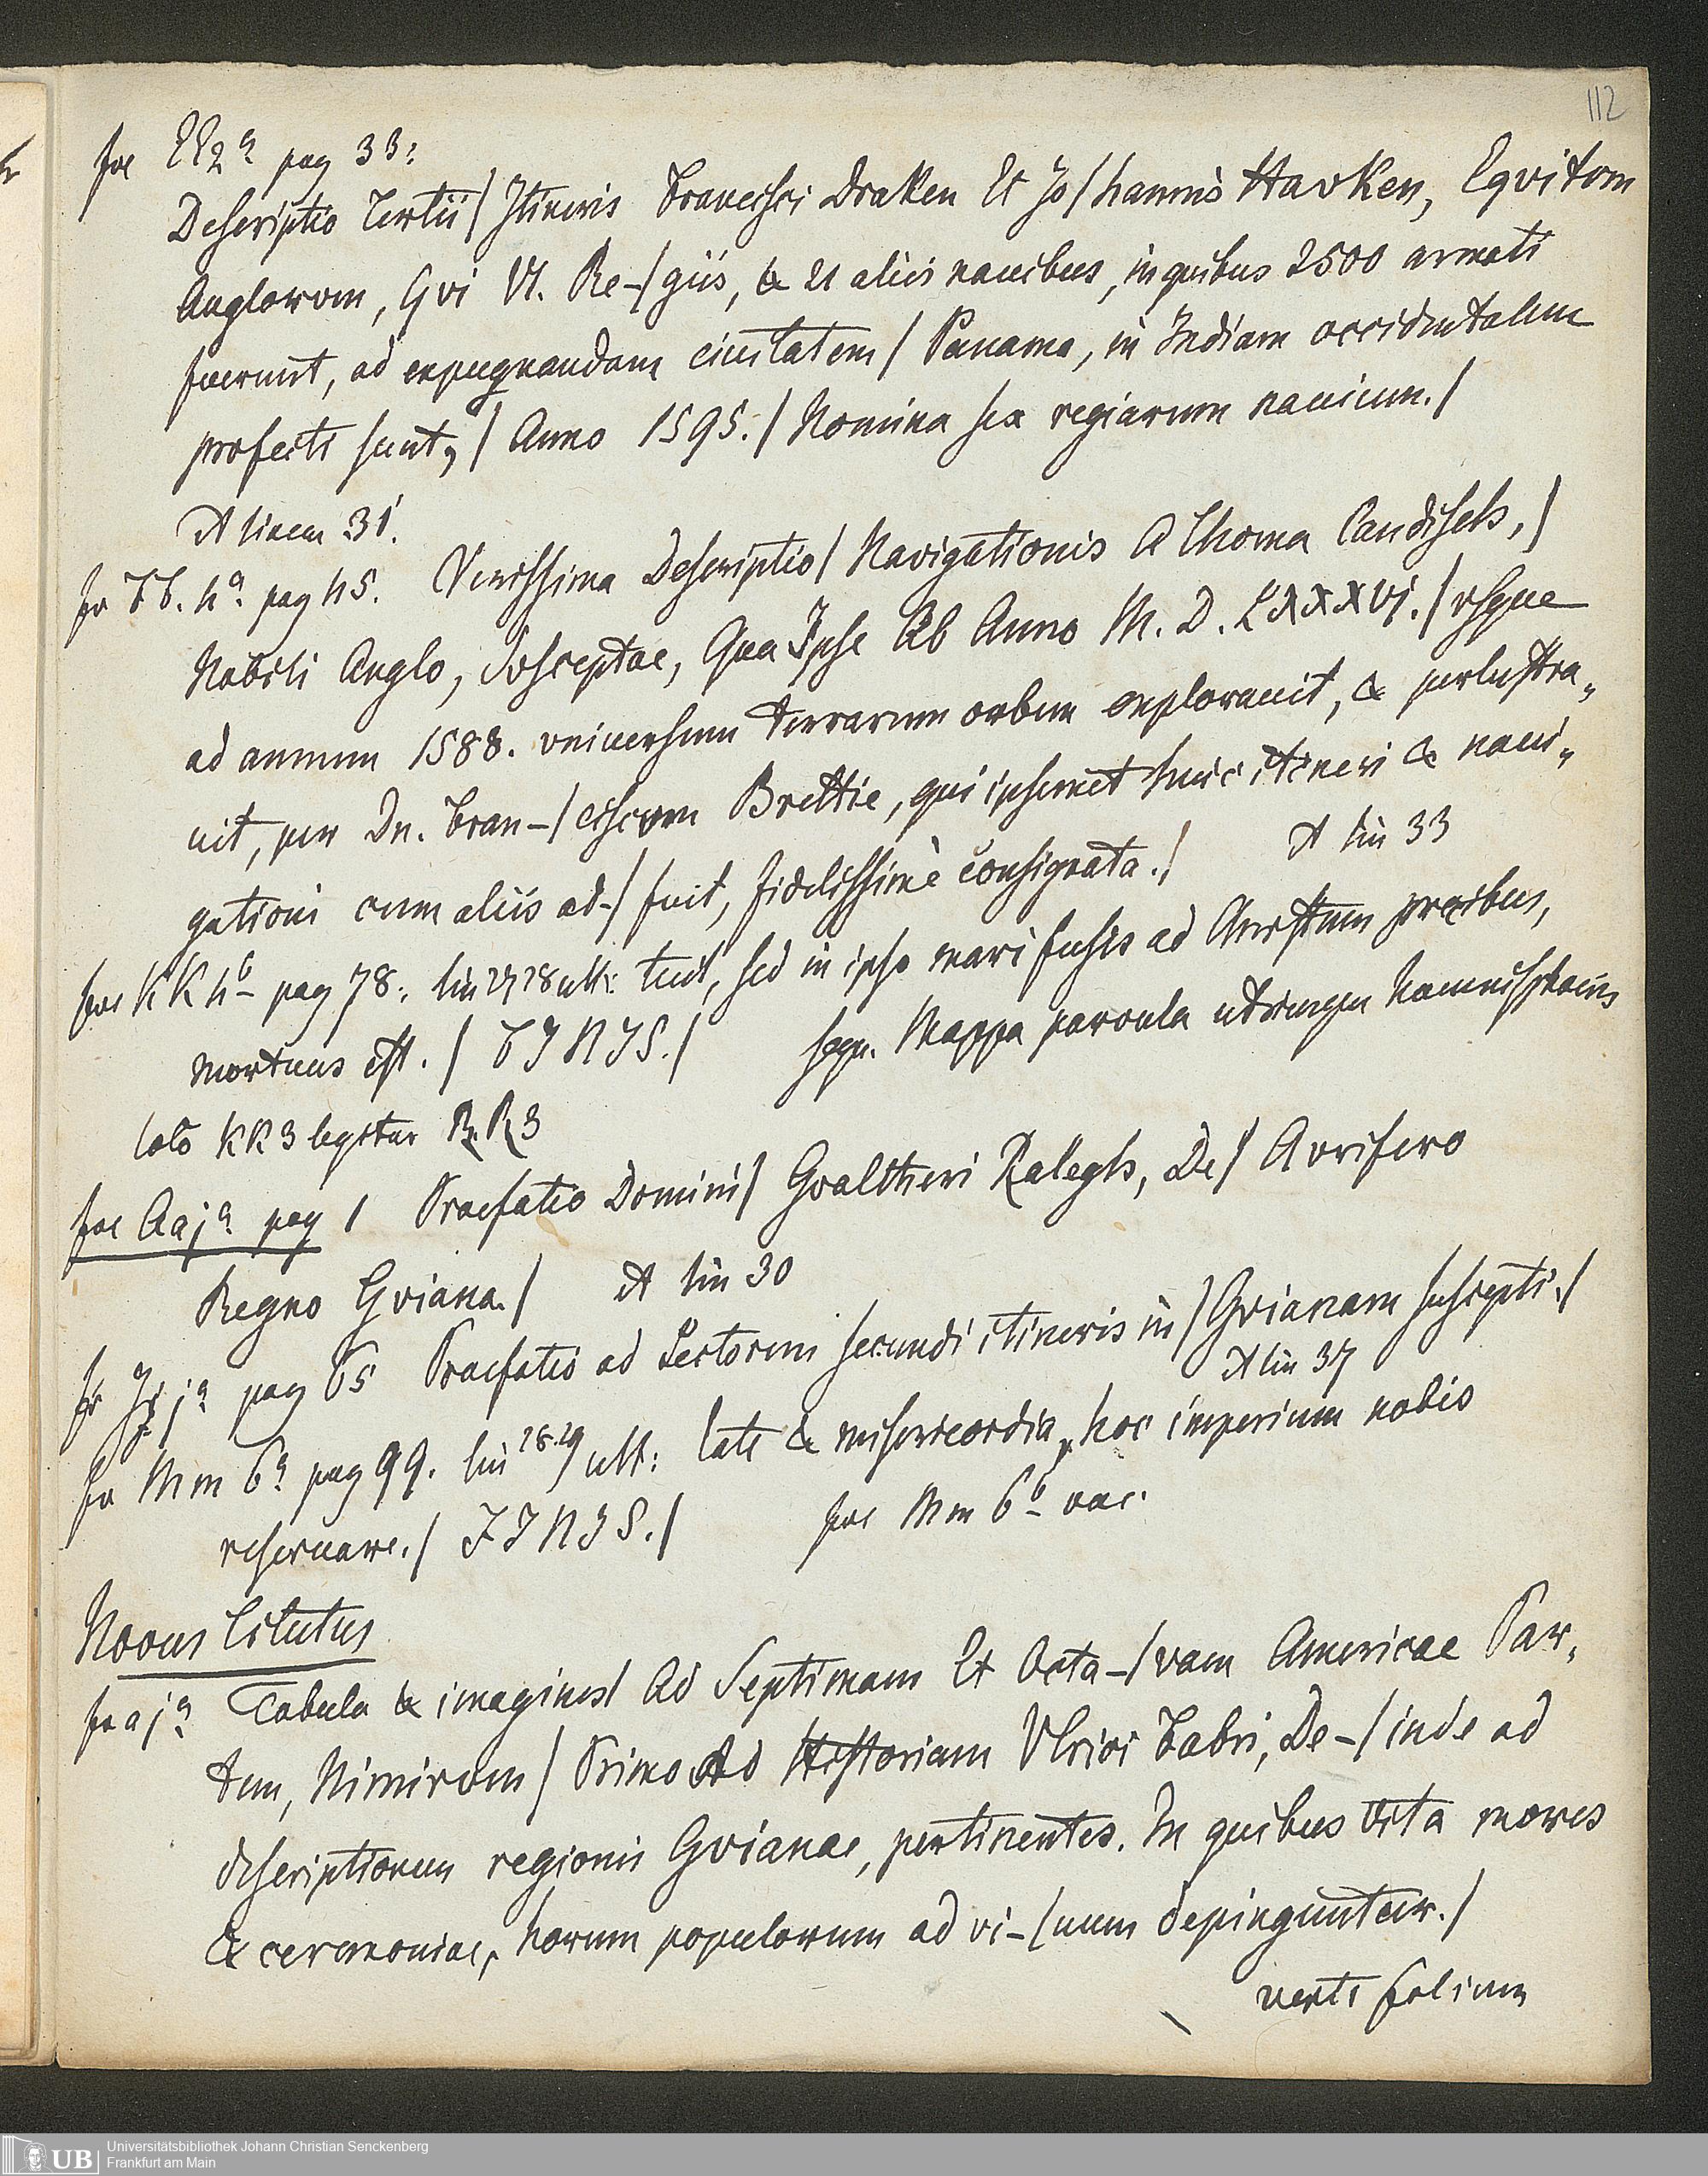 112
fol EE2a pag 33:
Descriptio Tertii / Itineris Francisci Draken Et Jo / hannis Havken, Eqvitvm
Anglorvm, Qvi VI. Re-/giis, & 21 aliis nauibus, in quibus 2500 armati
fuerunt, ad expugnandam ciuitatem / Panama, in Indiam occidentalem
profecti sunt, / Anno 1595. / Nomina sex regiarum nauium. /
Et linea 31.
fo FF. 4a. pag 45. Verissima Descriptio / Navigationis A Thoma Candisch, /
Nobili Anglo, Svsceptae, Qua Ipse Ab Anno M. D. LXXXVI. / vsque
ad annum 1588. vniuersum terrarum orbem explorauit, & perlustra„
uit, per Dn. Fran-/ciscvm Brettie, qui ipsemet huic itineri & naui„
gationi cum aliis ad-/fuit, fidelissimè consignata. / Et lin 33
fol KK 4b pag 78: lin 27 28 ult: tuit, sed in ipso mari fusis ad Christum precibus,
mortuus est. / FINIS. / seqn. Mappa parvula utringu
loco KK3 legitur RR3
fol Aa ja pag 1 Praefatio Domini / Gvaltheri Ralegh, De / Avrifero
Regno Gviana. / Et lin 30
fo Ii ja pag 65 Praefatio ad Lectorem secundi itineris in / Gvianam suscepti. /
Et lin 37
fo Mm 6a pag 99. lin 28.29 ult: tate & misericordia, hoc imperium nobis
reseruare. / FINIS. / fol Mm 6b vac.
Novus Titulus
fo a ja Tabula & imagines / Ad Septimam Et Octa-/vam Americae Par„
tem, Nimirvm / Primo Ad Historiam Vlrici Fabri, De-/inde ad
descriptionem regionis Gvianae, pertinentes. In quibus vita mores
& ceremoniae, horum populorum ad vi-/uum depinguntur. /
verte folium
UB
Universitätsbibliothek Johann Christian Senckenberg
Frankfurt am Main